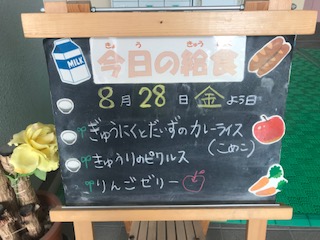 MILK
きょう きゅう
今日の給食
8月28日金よう日
ぎゅうにくとだいずのカレーライス
(こめこ)
きゅうりのピクルス
りんごゼリー